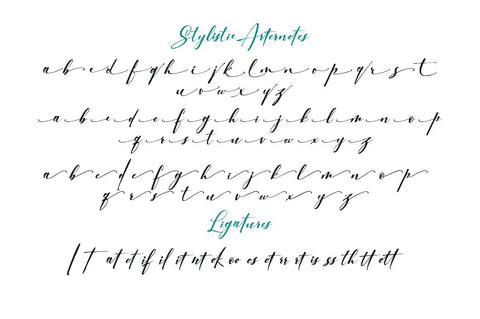 Stylistic Arternotes
a b c d e f g h i j k l m n o p q r s t
u v w x y z
a b c d e f g h i j k l m n o p
q r s t u v w x y z
a b c d e f g h i j k l m n o p
q r s t u v w x y z
Ligatures
l t at et if il it nt ok oo es et rr rt is ss th tt ett